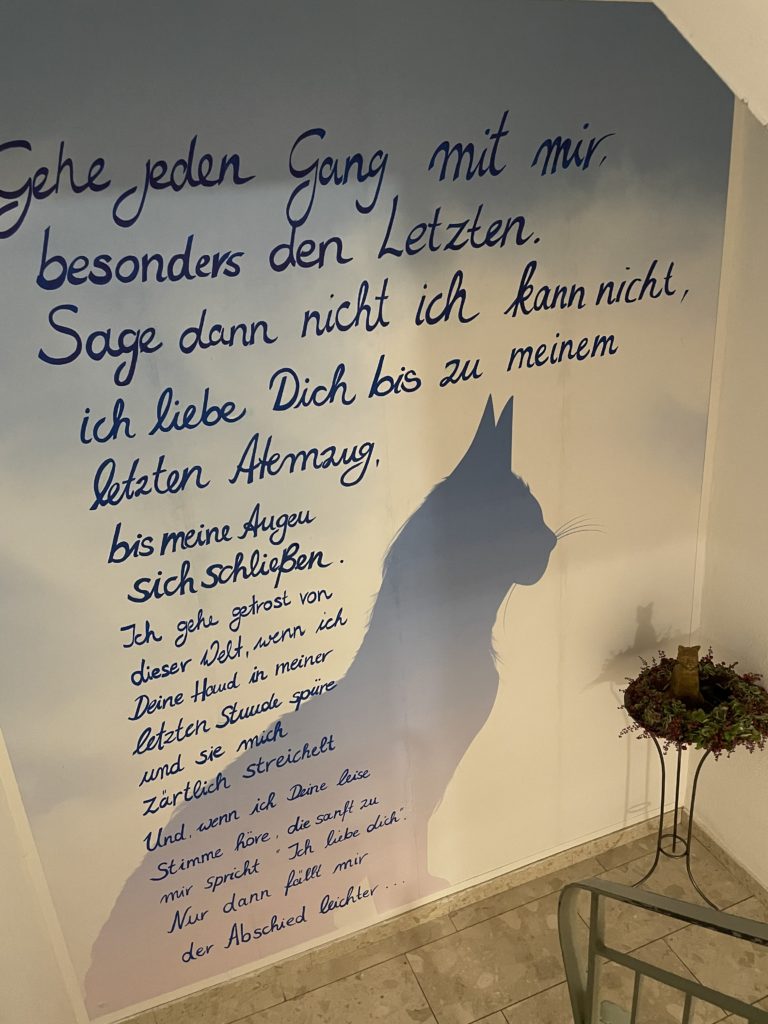 Gehe jeden Gang mit mir,
besonders den Letzten.
Sage dann nicht ich kann nicht,
ich liebe Dich bis zu meinem
letzten Atemzug,
bis meine Augen
sich schließen.
Ich gehe getrost von
dieser Welt, wenn ich
Deine Hand in meiner
letzten Stunde spüre
und sie mich
zärtlich streichelt
Und, wenn ich Deine leise
Stimme höre, die sanft zu
mir spricht "Ich liebe dich".
Nur dann fällt mir
der Abschied leichter...